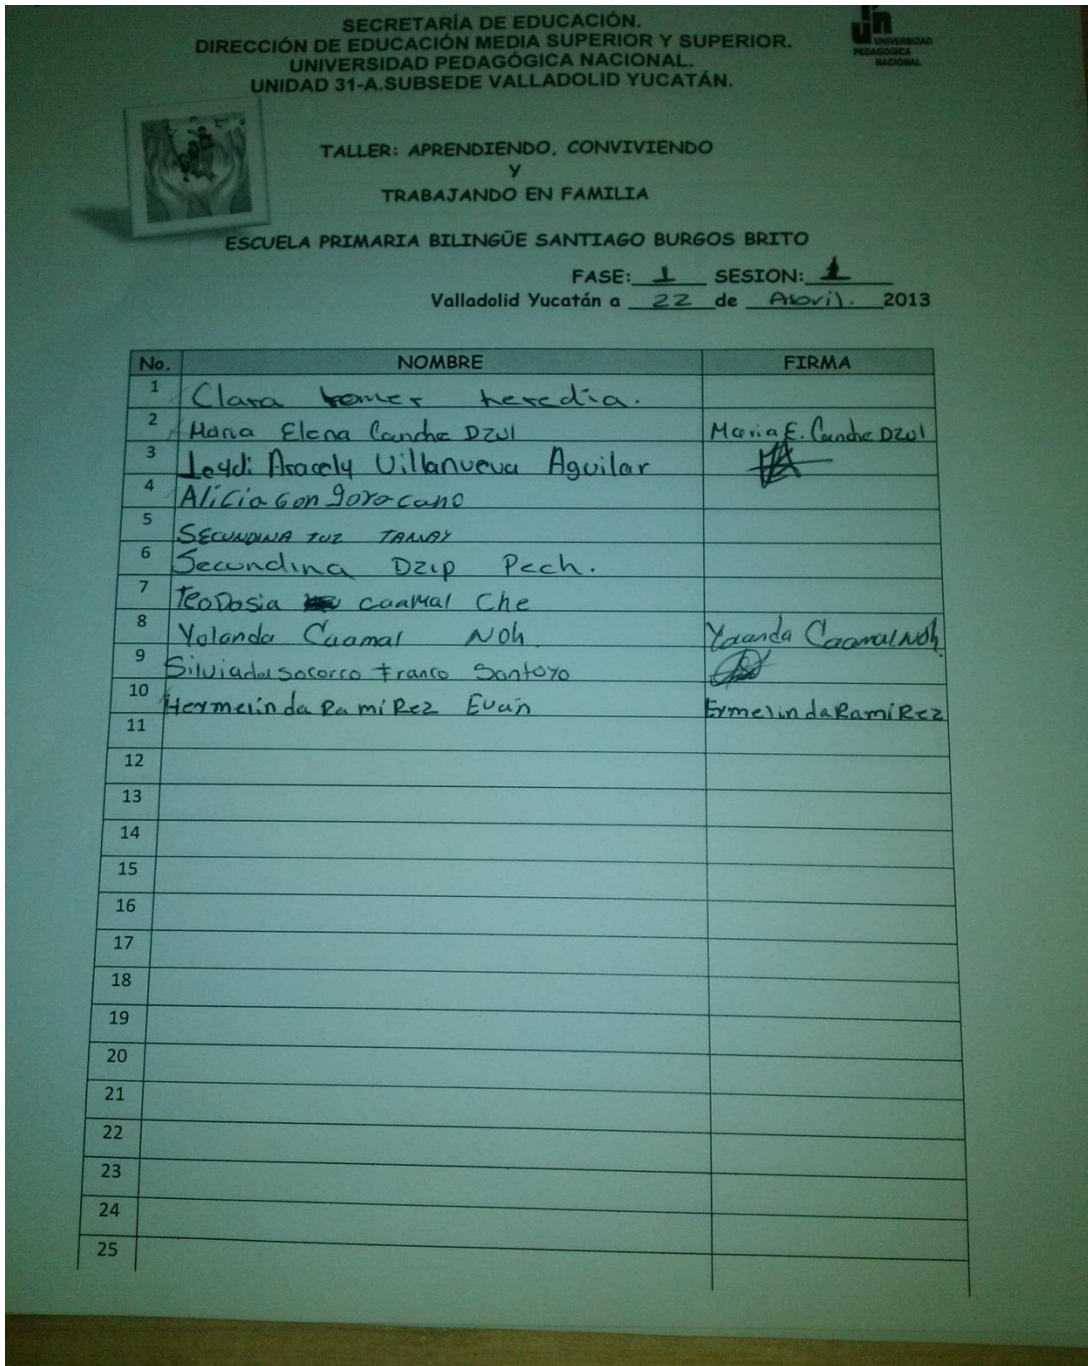 SECRETARÍA DE EDUCACIÓN.
DIRECCIÓN DE EDUCACIÓN MEDIA SUPERIOR Y SUPERIOR.
UNIVERSIDAD PEDAGÓGICA NACIONAL.
UNIDAD 31-A.SUBSEDE VALLADOLID YUCATÁN.
UNIVERSIDAD
PEDAGOGICA
NACIONAL
TALLER: APRENDIENDO, CONVIVIENDO
Y
TRABAJANDO EN FAMILIA
ESCUELA PRIMARIA BILINGÜE SANTIAGO BURGOS BRITO
FASE: 1 SESION: 1
Valladolid Yucatán a 22 de Abril. 2013
No. NOMBRE FIRMA
1 Clara heredia.
2 Maria Elena Canche Dzul Maria E. Canche Dzul
3 Leydi Aracely Villanueva Aguilar
4 Alicia Gongora cano
5 SECUNDINA TUZ TAMAY
6 Secundina Dzip Pech.
7 TeoDosia caaMal Che
8 Yolanda Caamal Noh Yolanda Caamal Noh.
9 Silvia del socorro Franco Santoyo
10 Hermelinda RamiRez Euán Ermelinda RamiRez
11
12
13
14
15
16
17
18
19
20
21
22
23
24
25